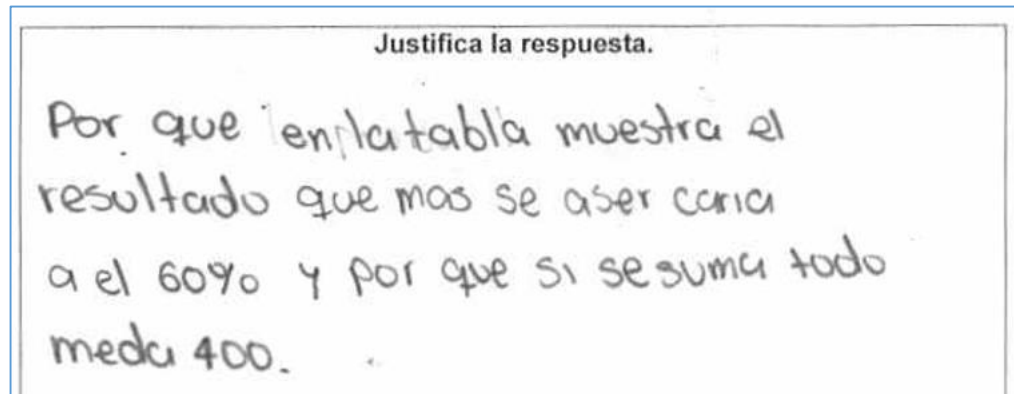 Justifica la respuesta.
Por que en la tabla muestra el
resultado que mas se aser caria
a el 60% y por que si se suma todo
meda 400.